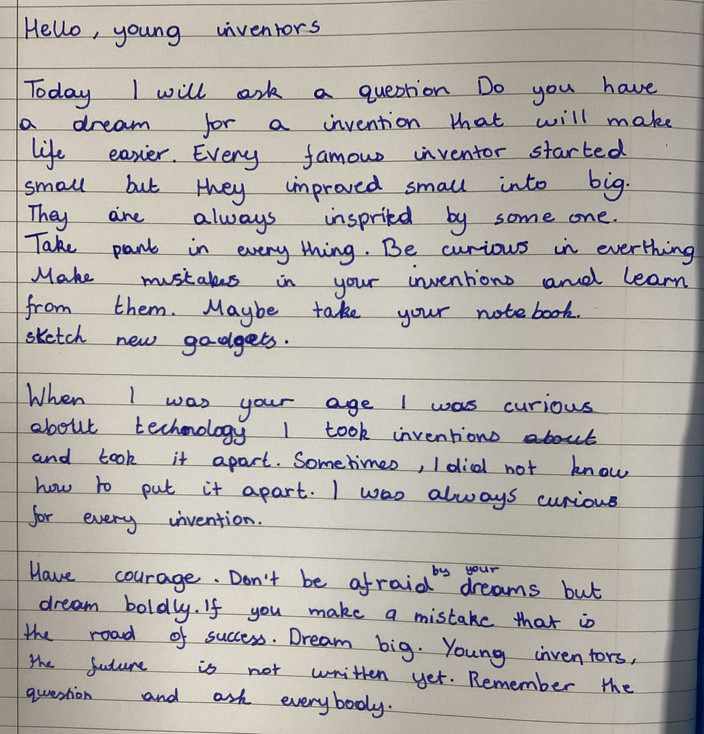 Hello, young inventors
Today I will ask a question Do you have
a dream for a invention that will make
life easier. Every famous inventor started
small but they improved small into big.
They are always insprited by some one.
Take part in every thing. Be curious in everthing
Make mistakes in your inventions and learn
from them. Maybe take your note book.
sketch new gadgets.
When I was your age I was curious
about technology I took inventions about
and took it apart. Sometimes, I did not know
how to put it apart. I was always curious
for every invention.
Have courage. Don't be afraid by your dreams but
dream boldly. If you make a mistake that is
the road of success. Dream big. Young inventors,
the future is not written yet. Remember the
question and ask everybody.